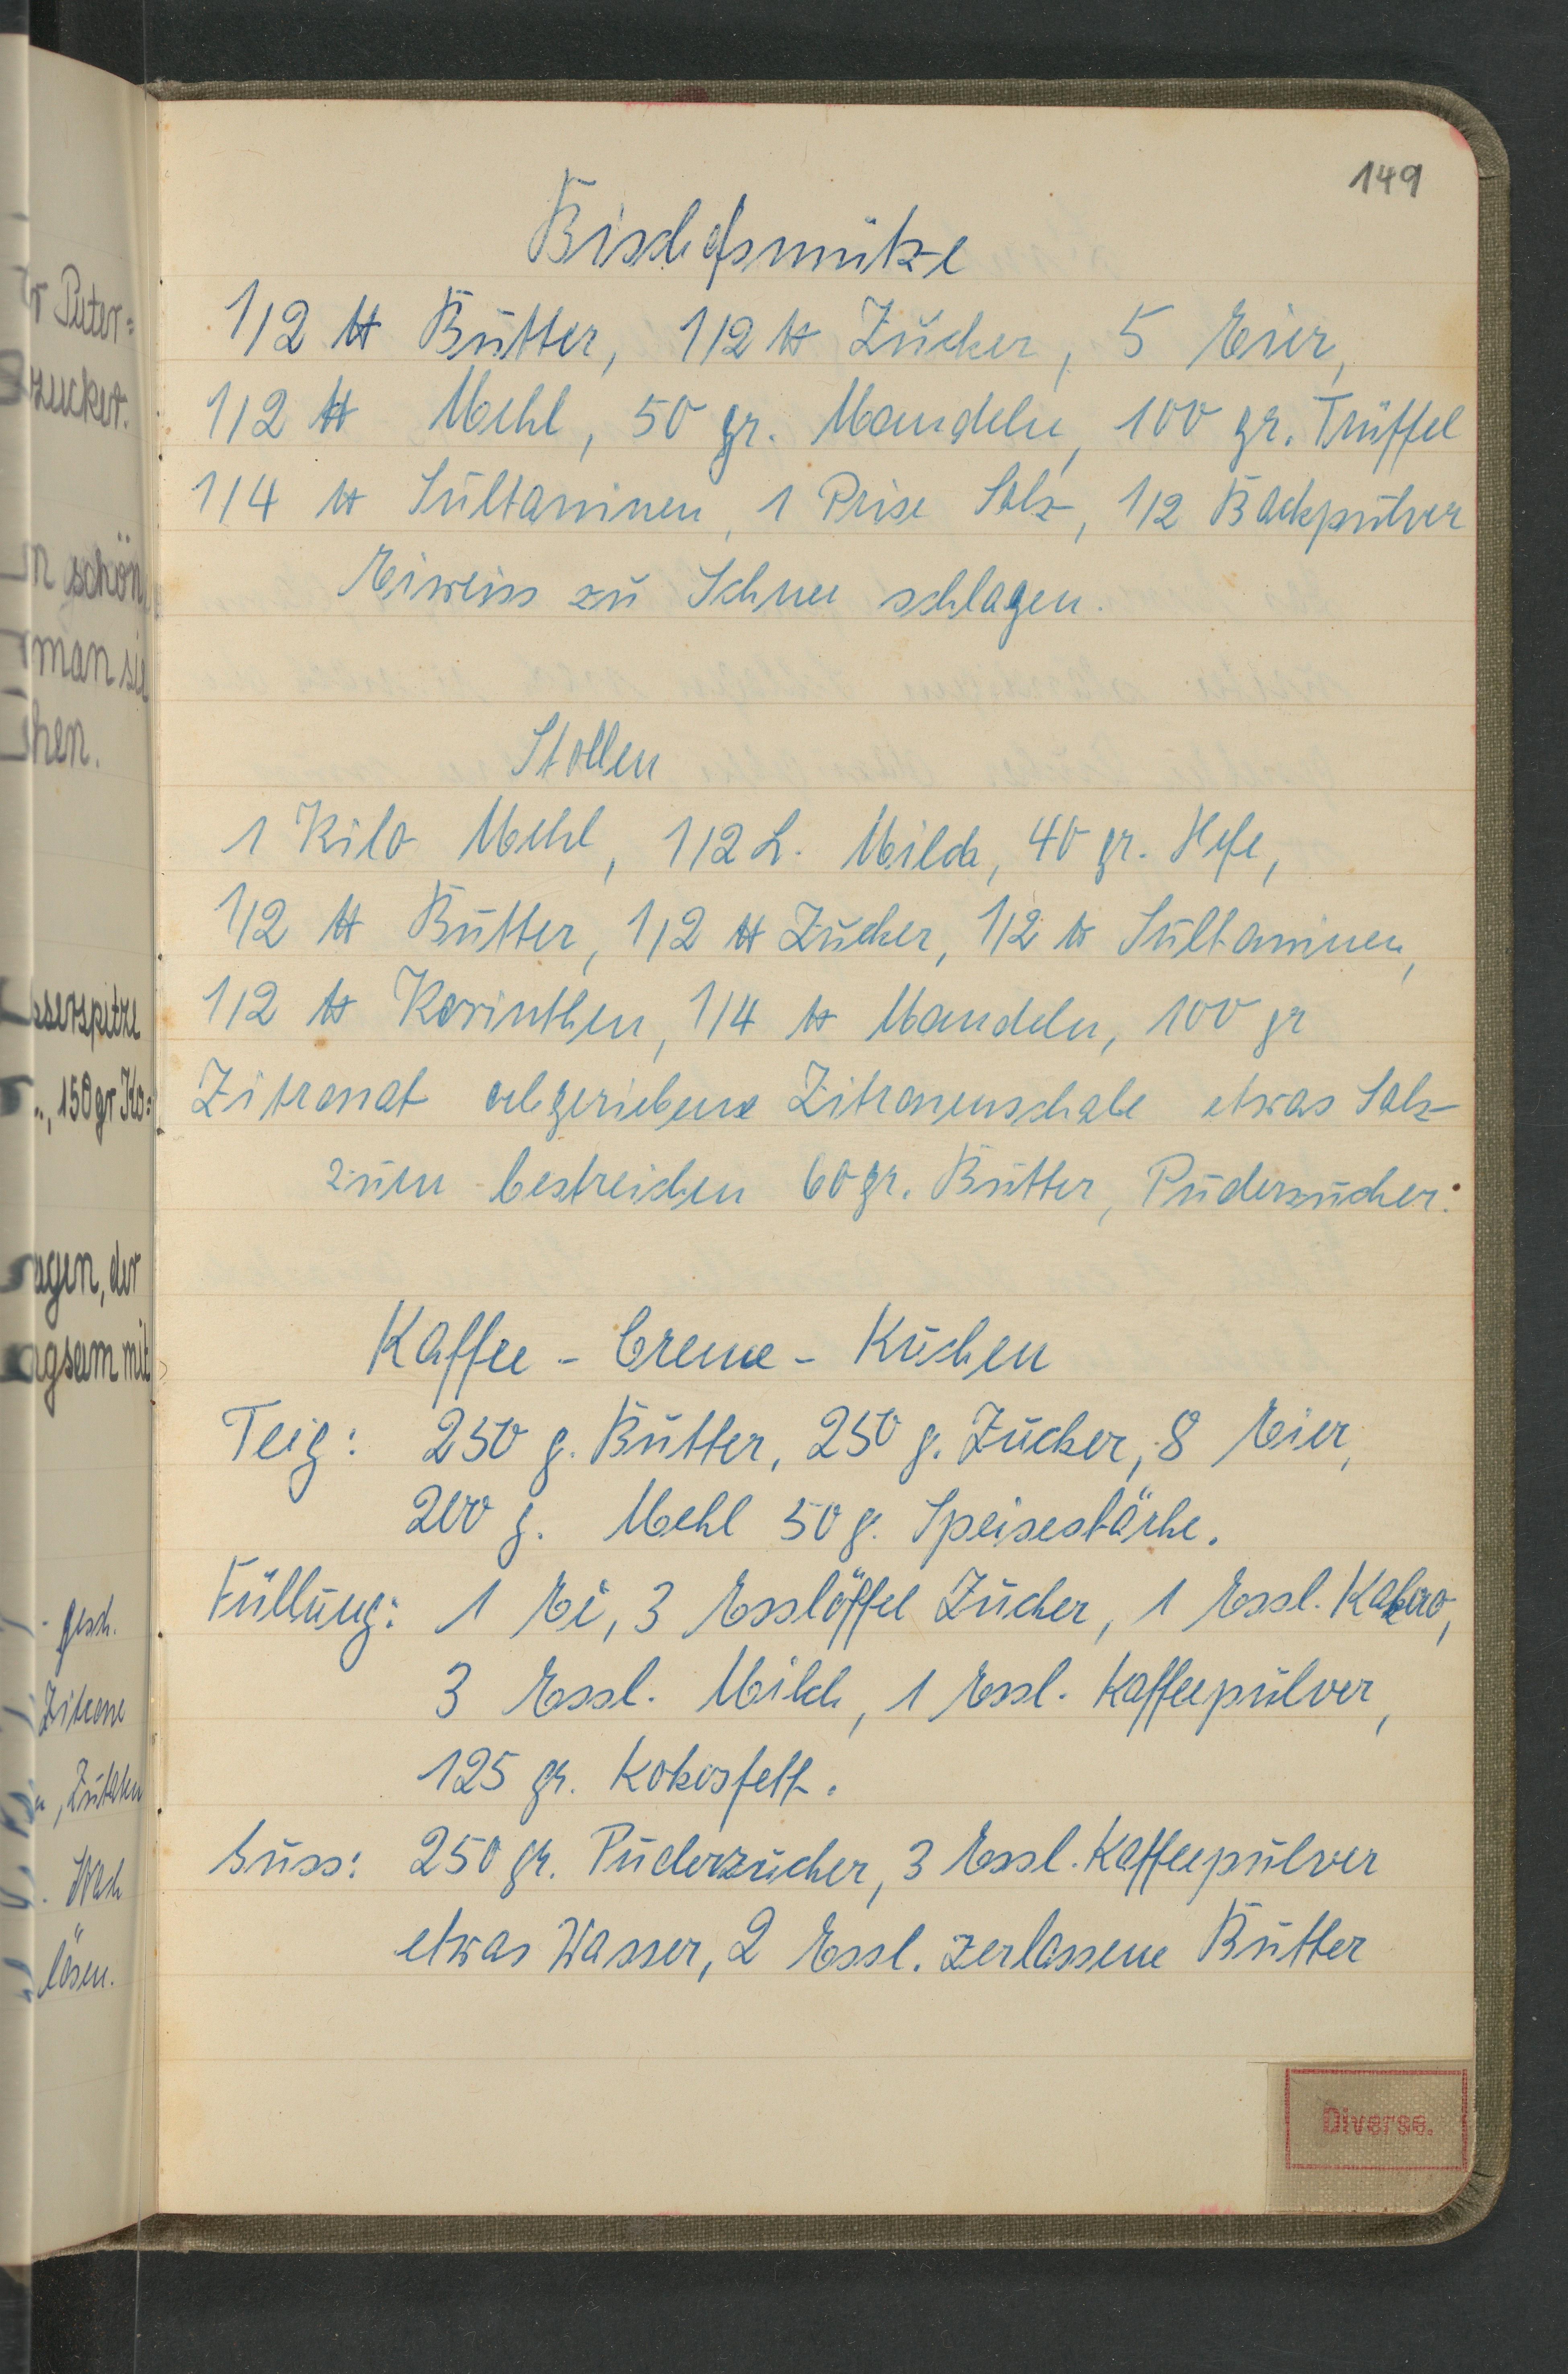 r Puter=
zucker.
n schön
man sie
hen.
sserspitze
150 gr Ko=
agen, der
ngsam mit
gesch.
Zitrone
Zutaten
lösen.
149
Bischofsmütze
1/2 ℔ Butter, 1/2 ℔ Zucker, 5 Eier,
1/2 ℔ Mehl, 50 gr. Mandeln, 100 gr. Trüffel
1/4 ℔ Sultaninen, 1 Prise Salz, 1/2 Backpulver
Eiweiss zu Schnee schlagen.
Stollen
1 Kilo Mehl, 1/2 L. Milch, 40 gr. Hefe,
1/2 ℔ Butter, 1/2 ℔ Zucker, 1/2 ℔ Sultaninen,
1/2 ℔ Korinthen, 1/4 ℔ Mandeln, 100 gr
Zitronat abgeriebene Zitronenschale etwas Salz
zum bestreichen 60 gr. Butter, Puderzucker.
Kaffee - Creme - Kuchen
Teig: 250 g. Butter, 250 g. Zucker, 8 Eier,
200 g. Mehl 50 g. Speisestärke.
Füllung: 1 Ei, 3 Esslöffel Zucker, 1 Essl. Kakao,
3 Essl. Milch, 1 Essl. Kaffeepulver,
125 gr. Kokosfett.
Guss: 250 gr. Puderzucker, 3 Essl. Kaffeepulver
etwas Wasser, 2 Essl. zerlassene Butter
Diverse.